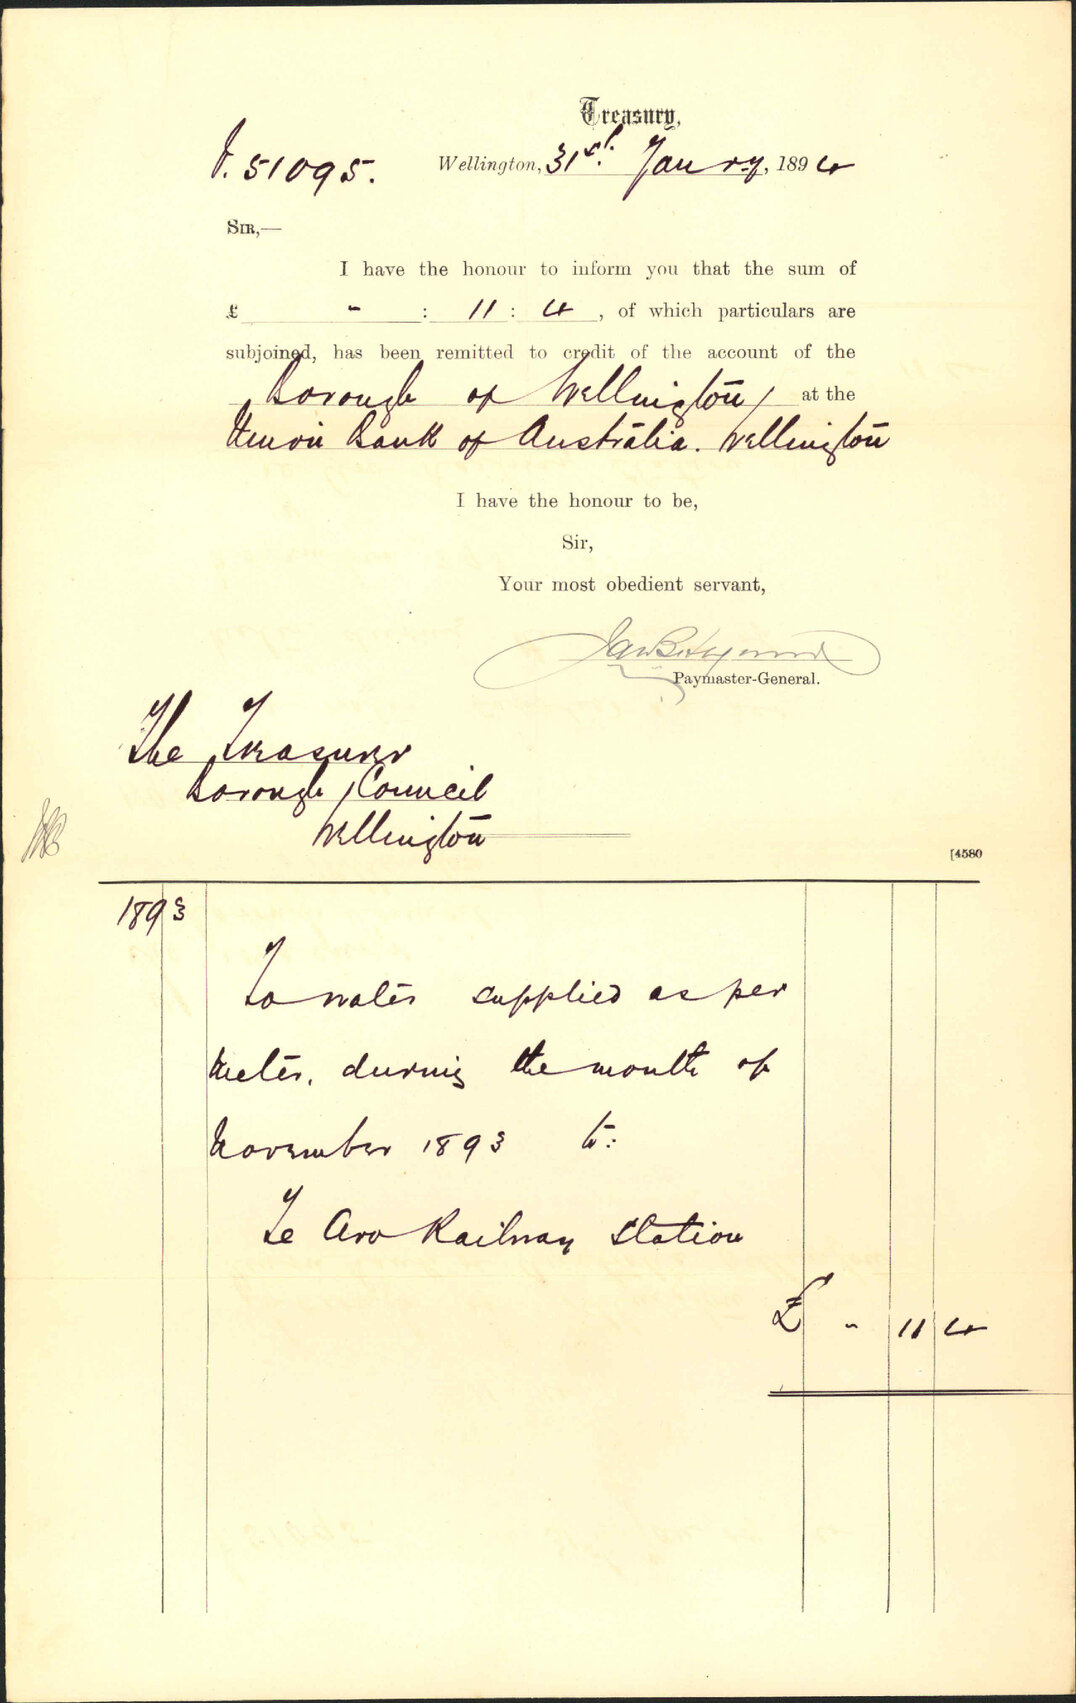 Treasury,
V. 51095.
Wellington, 31st. Jany, 1894
SIR,—
I have the honour to inform you that the sum of
£ - : 11 : 4, of which particulars are
subjoined, has been remitted to credit of the account of the
Borough of Wellington, at the
Union Bank of Australia. Wellington
I have the honour to be,
Sir,
Your most obedient servant,
Paymaster-General.
The Treasurer
Borough Council
Wellington
[4580
1893
To water supplied as per
meter, during the month of
November 1893 to:
Te Aro Railway Station
£ - 11 4